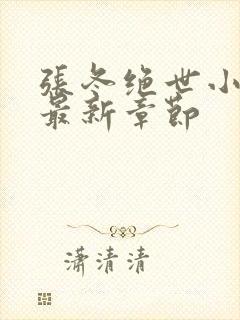 張冬绝世小
最新章節
潇清清